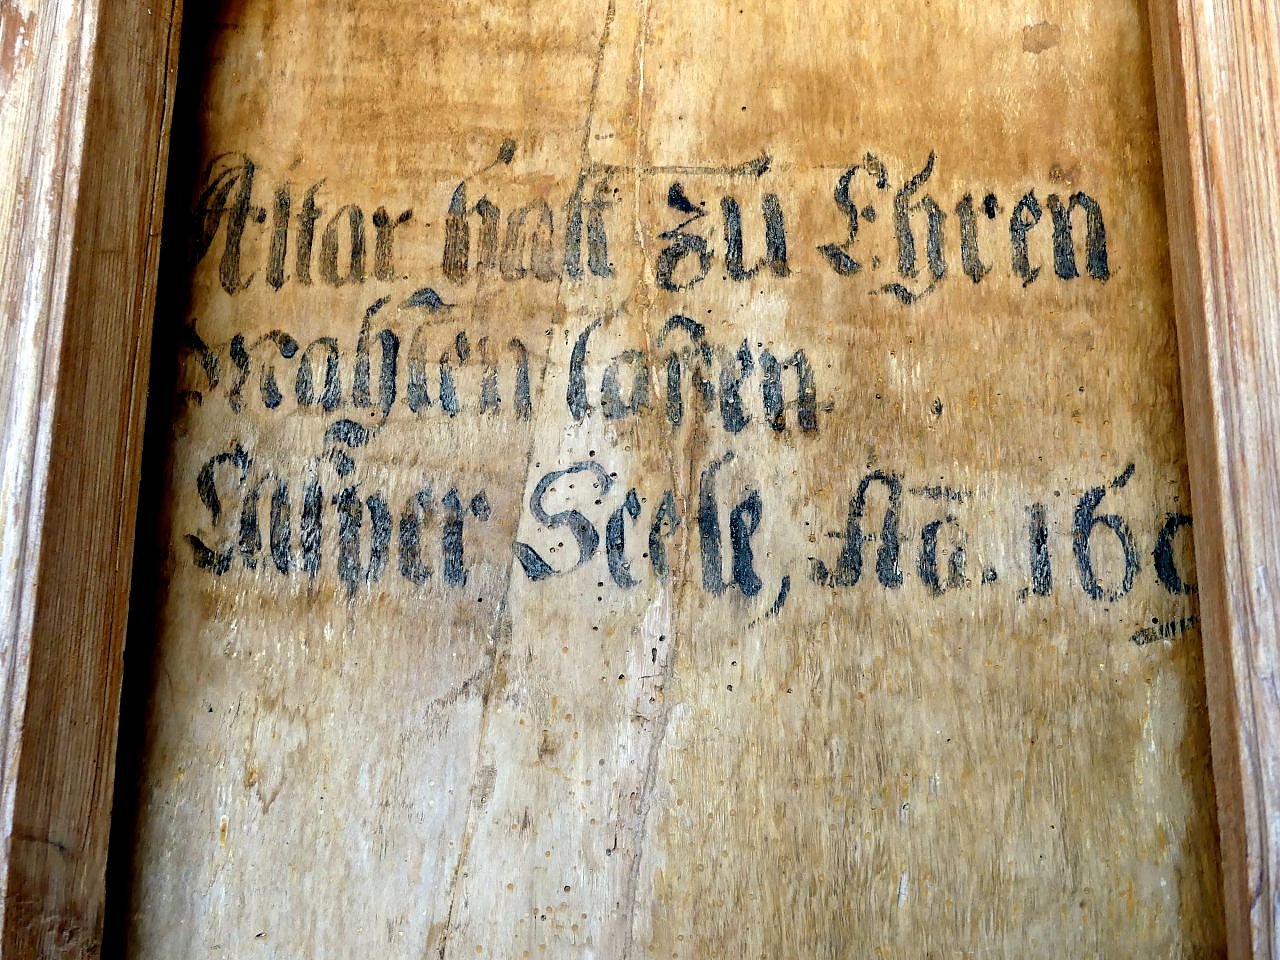 Altar hatt zu Ehren
mahlen laßen
Casper Seele, Aō. 160